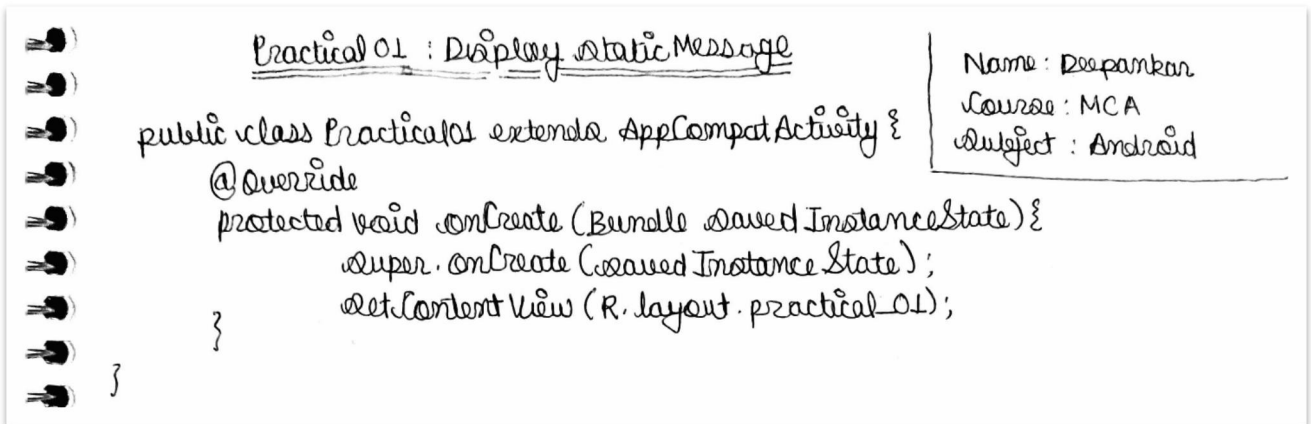 Practical 01 : Display static Message
Name : Deepankar
Course : MCA
Subject : Android
public class Practical01 extends AppCompatActivity {
@Override
protected void onCreate (Bundle saved InstanceState) {
super. onCreate (saved Instance State) ;
set Content View (R. layout. practical_01) ;
}
}